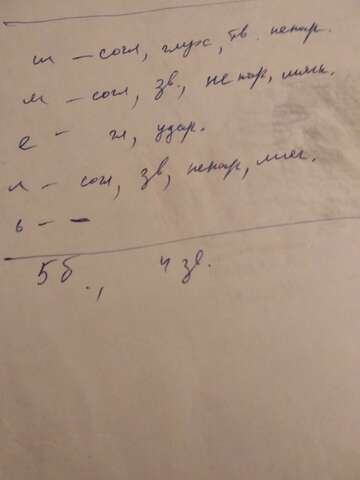 ш - согл, глух, тв. непар.
м - согл, зв., непар, мягк.
е - гл, удар.
л - согл, зв, непар, мяг.
ь - -
5б., 4 зв.